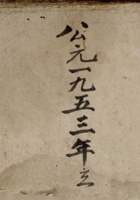 公元一九五三年立